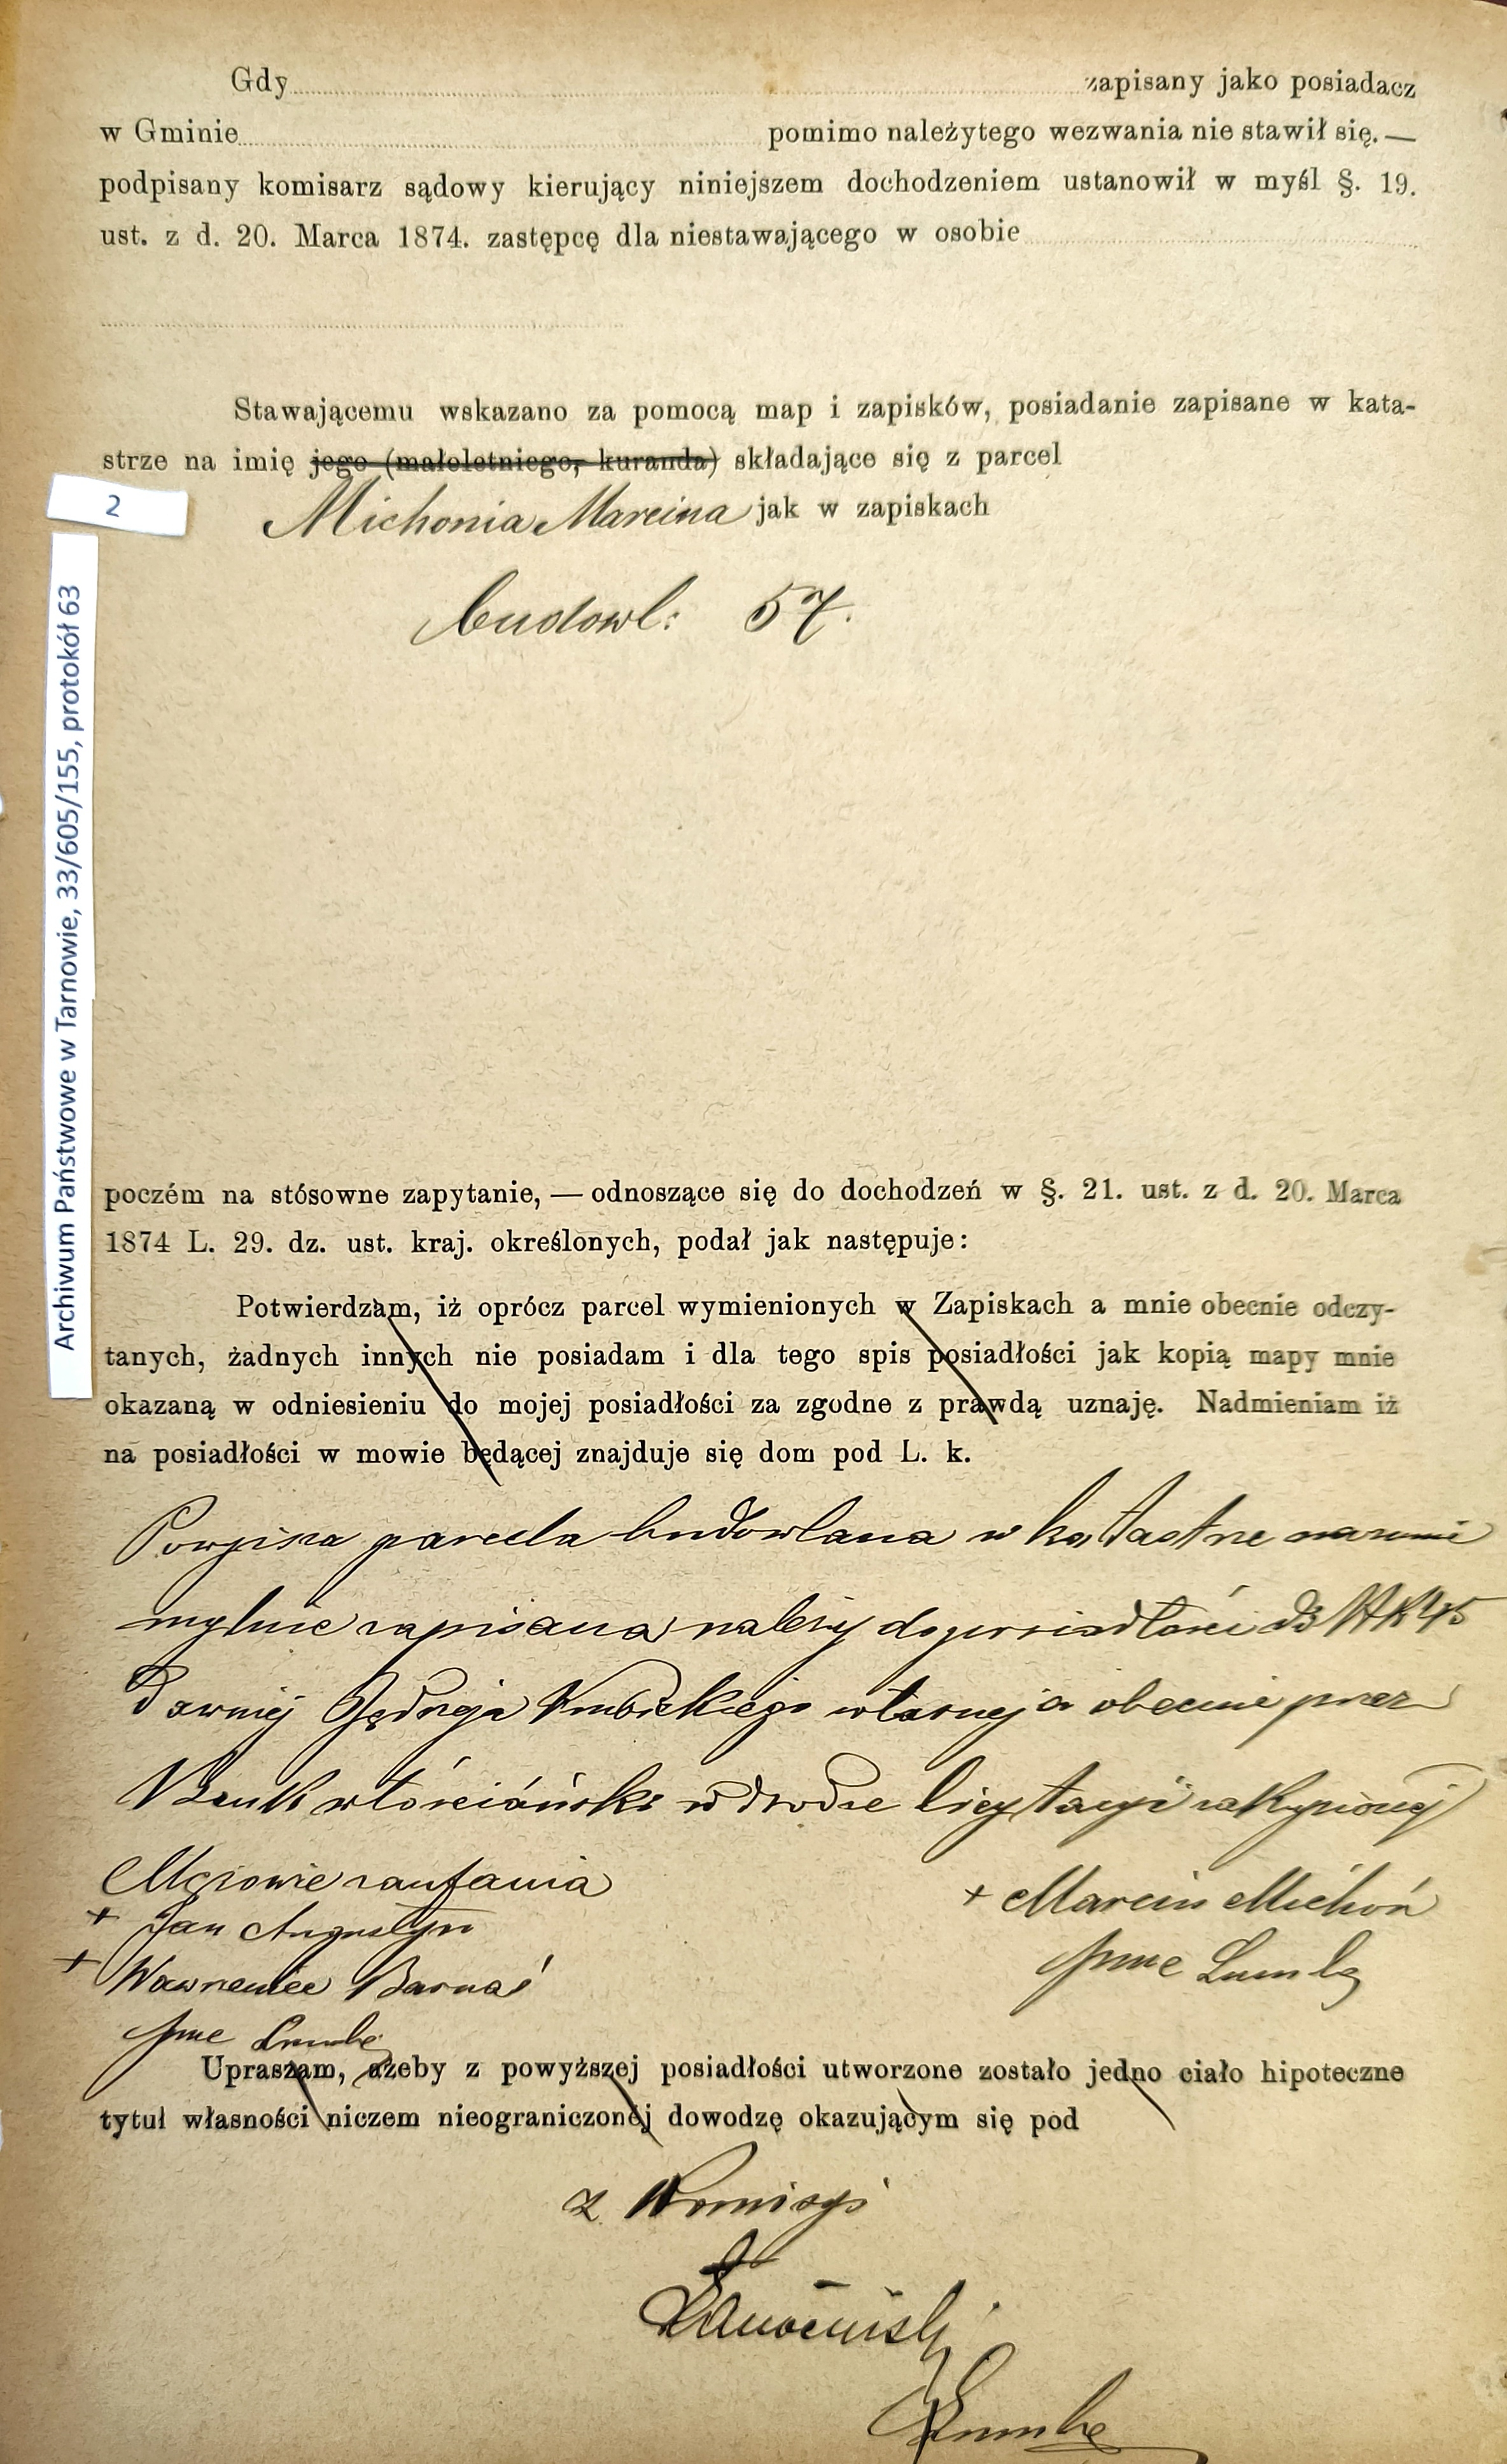 Gdy zapisany jako posiadacz
w Gminie pomimo należytego wezwania nie stawił się. —
podpisany komisarz sądowy kierujący niniejszem dochodzeniem ustanowił w myśl §. 19.
ust. z d. 20. Marca 1874. zastępcę dla niestawającego w osobie
Stawającemu wskazano za pomocą map i zapisków, posiadanie zapisane w kata-
strze na imię jego (małoletniego, kuranda) składające się z parcel
2
Michonia Marcina jak w zapiskach
budowl: 57.
Archiwum Państwowe w Tarnowie, 33/605/155, protokół 63
poczém na stósowne zapytanie, — odnoszące się do dochodzeń w §. 21. ust. z d. 20. Marca
1874 L. 29. dz. ust. kraj. określonych, podał jak następuje:
Potwierdzam, iż oprócz parcel wymienionych w Zapiskach a mnie obecnie odczy-
tanych, żadnych innych nie posiadam i dla tego spis posiadłości jak kopią mapy mnie
okazaną w odniesieniu do mojej posiadłości za zgodne z prawdą uznaję. Nadmieniam iż
na posiadłości w mowie będącej znajduje się dom pod L. k.
Powyższa parcela budowlana w katastrze na
mylnie zapisana należy do posiadłości 45
dawniej Jędrzeja własnej a obecnie przez
Bank włościański w drodze licytacyi zakupionej
Mężowie zaufania
+ Marcin Michoń
+ Jan Augustyn
+ Wawrzeniec Barnaś
Upraszam, ażeby z powyższej posiadłości utworzone zostało jedno ciało hipoteczne
tytuł własności niczem nieograniczonéj dowodzę okazującym się pod
z Komisyi